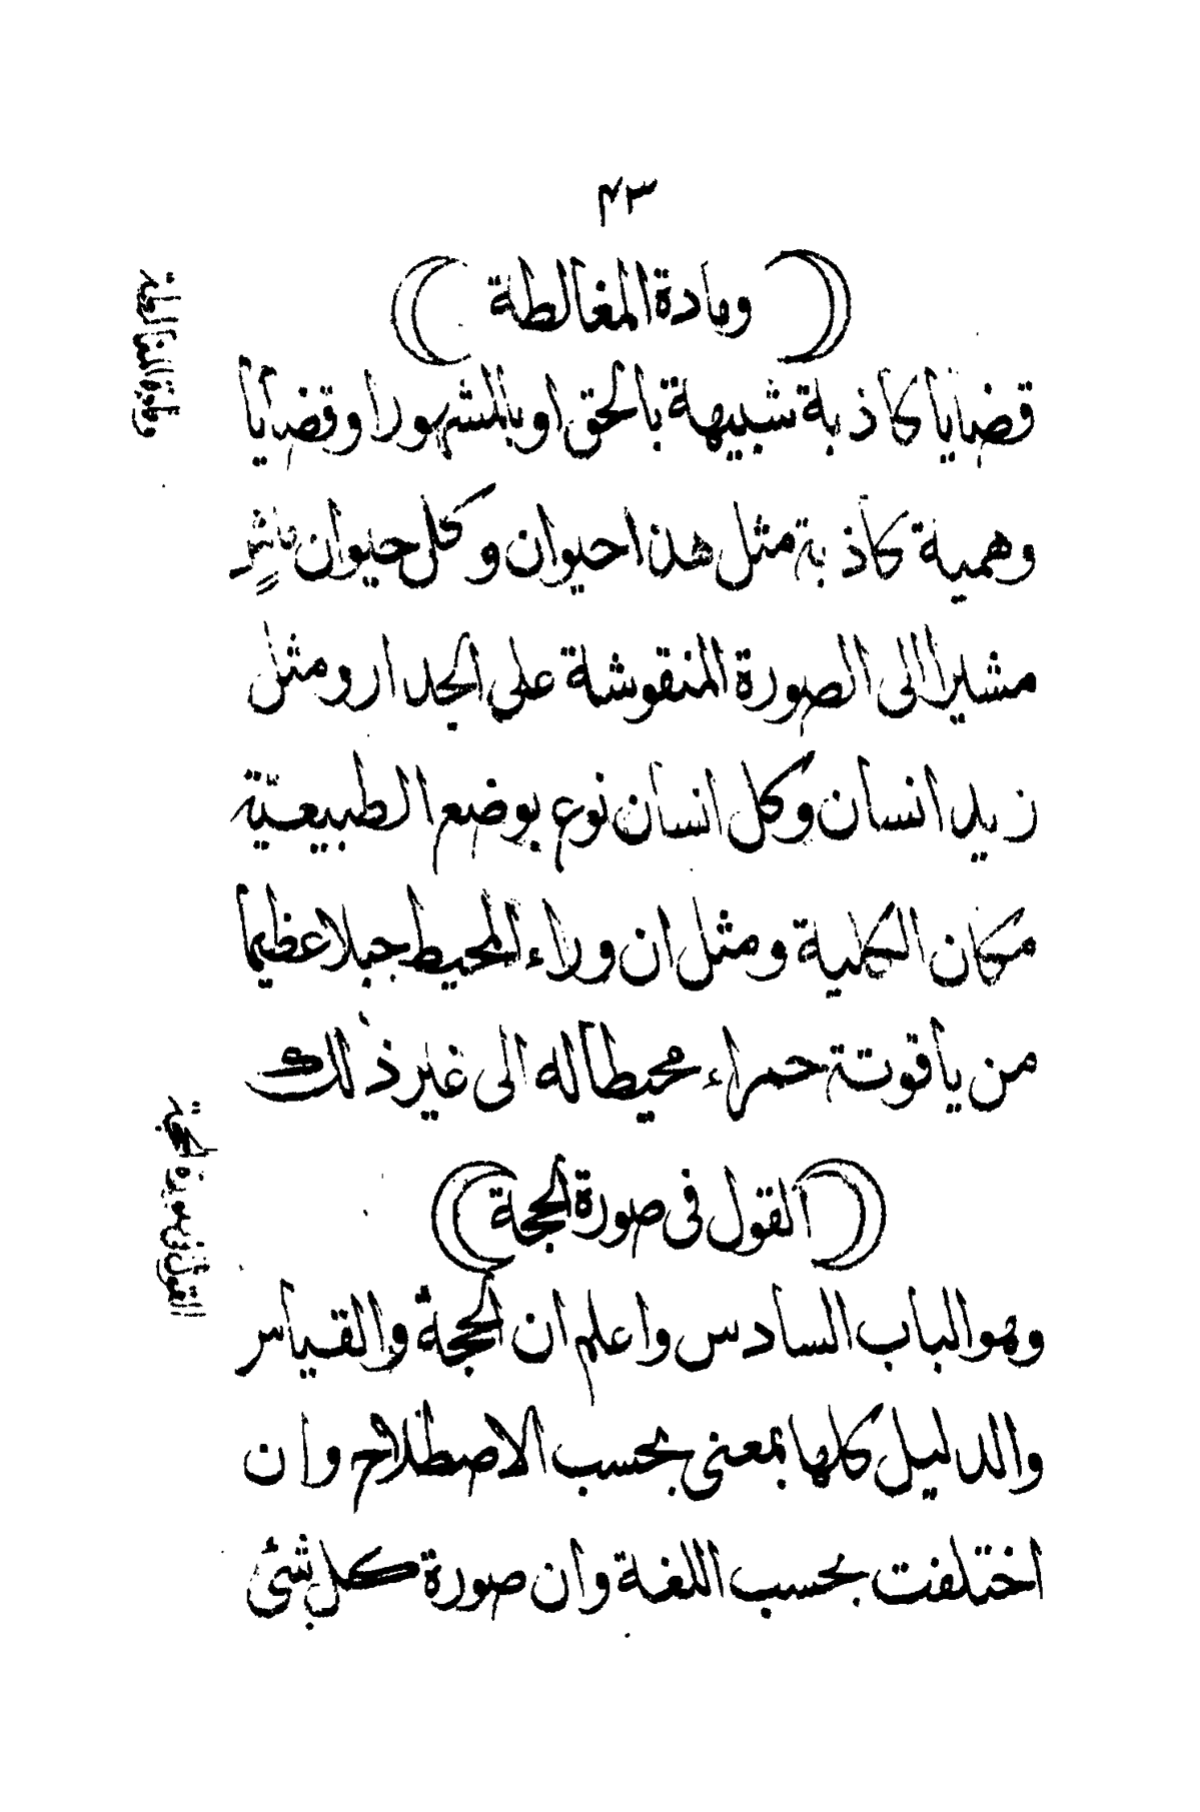 ۴۳
ومادة المغالطة
قضايا كاذبة شبيهة بالحق او بالمشهور او قضايا
وهمية كاذبة مثل هذا حيوان وكل حيوان
مشيرا الى الصورة المنقوشة على الجدار ومثل
زيد انسان وكل انسان نوع بوضع الطبيعيّة
مكان الكلية ومثل ان وراء المحيط جبلا عظيما
من ياقوتة حمراء محيطا له الى غير ذلك
القول فى صورة الحجة
وهو الباب السادس واعلم ان الحجة والقياس
والدليل كلها بمعنى بحسب الاصطلاح وان
اختلفت بحسب اللغة وان صورة كل شئ
ومادة المغالطة
القول فى صورة الحجة